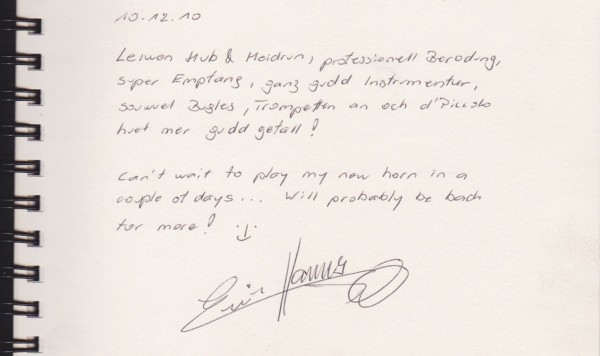 10.12.10
Leiwen Hub & Heidrun, professionell Berodung,
super Empfang, ganz gudd Instrumenter,
souwuel Bugles, Trompetten an och d'Piccolo
huet mer gudd gefall!
Can't wait to play my new horn in a
couple of days... Will probably be back
for more! :-)